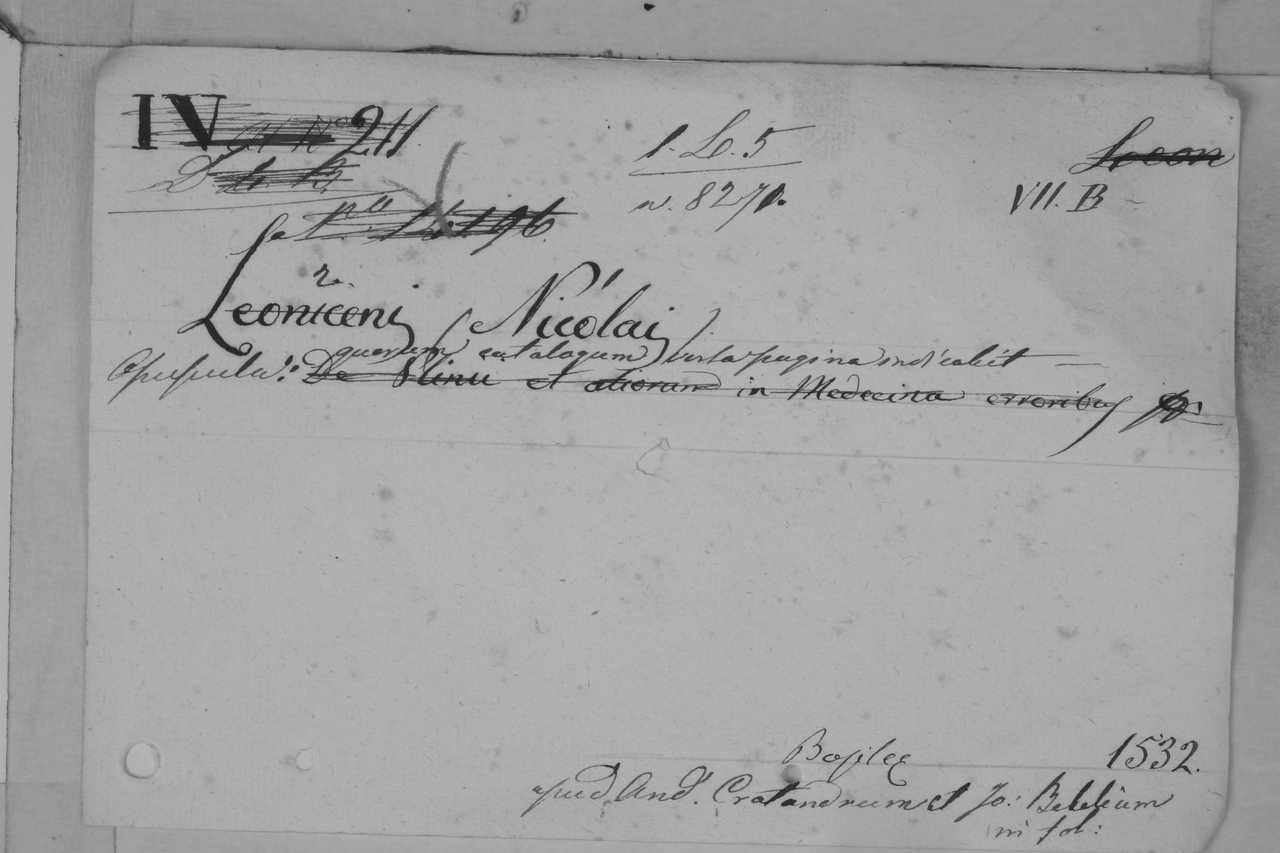 IV 211.
1. L. 5
n. 8270.
Leon
VII. B
Leoniceni Nicolai
quorum catalogum versa pagina indicabit
Opuscula: De Plinii et aliorum in Medecina erroribus
Basileę 1532.
apud And. Cratandrum et Jo: Bebelium
in fol: